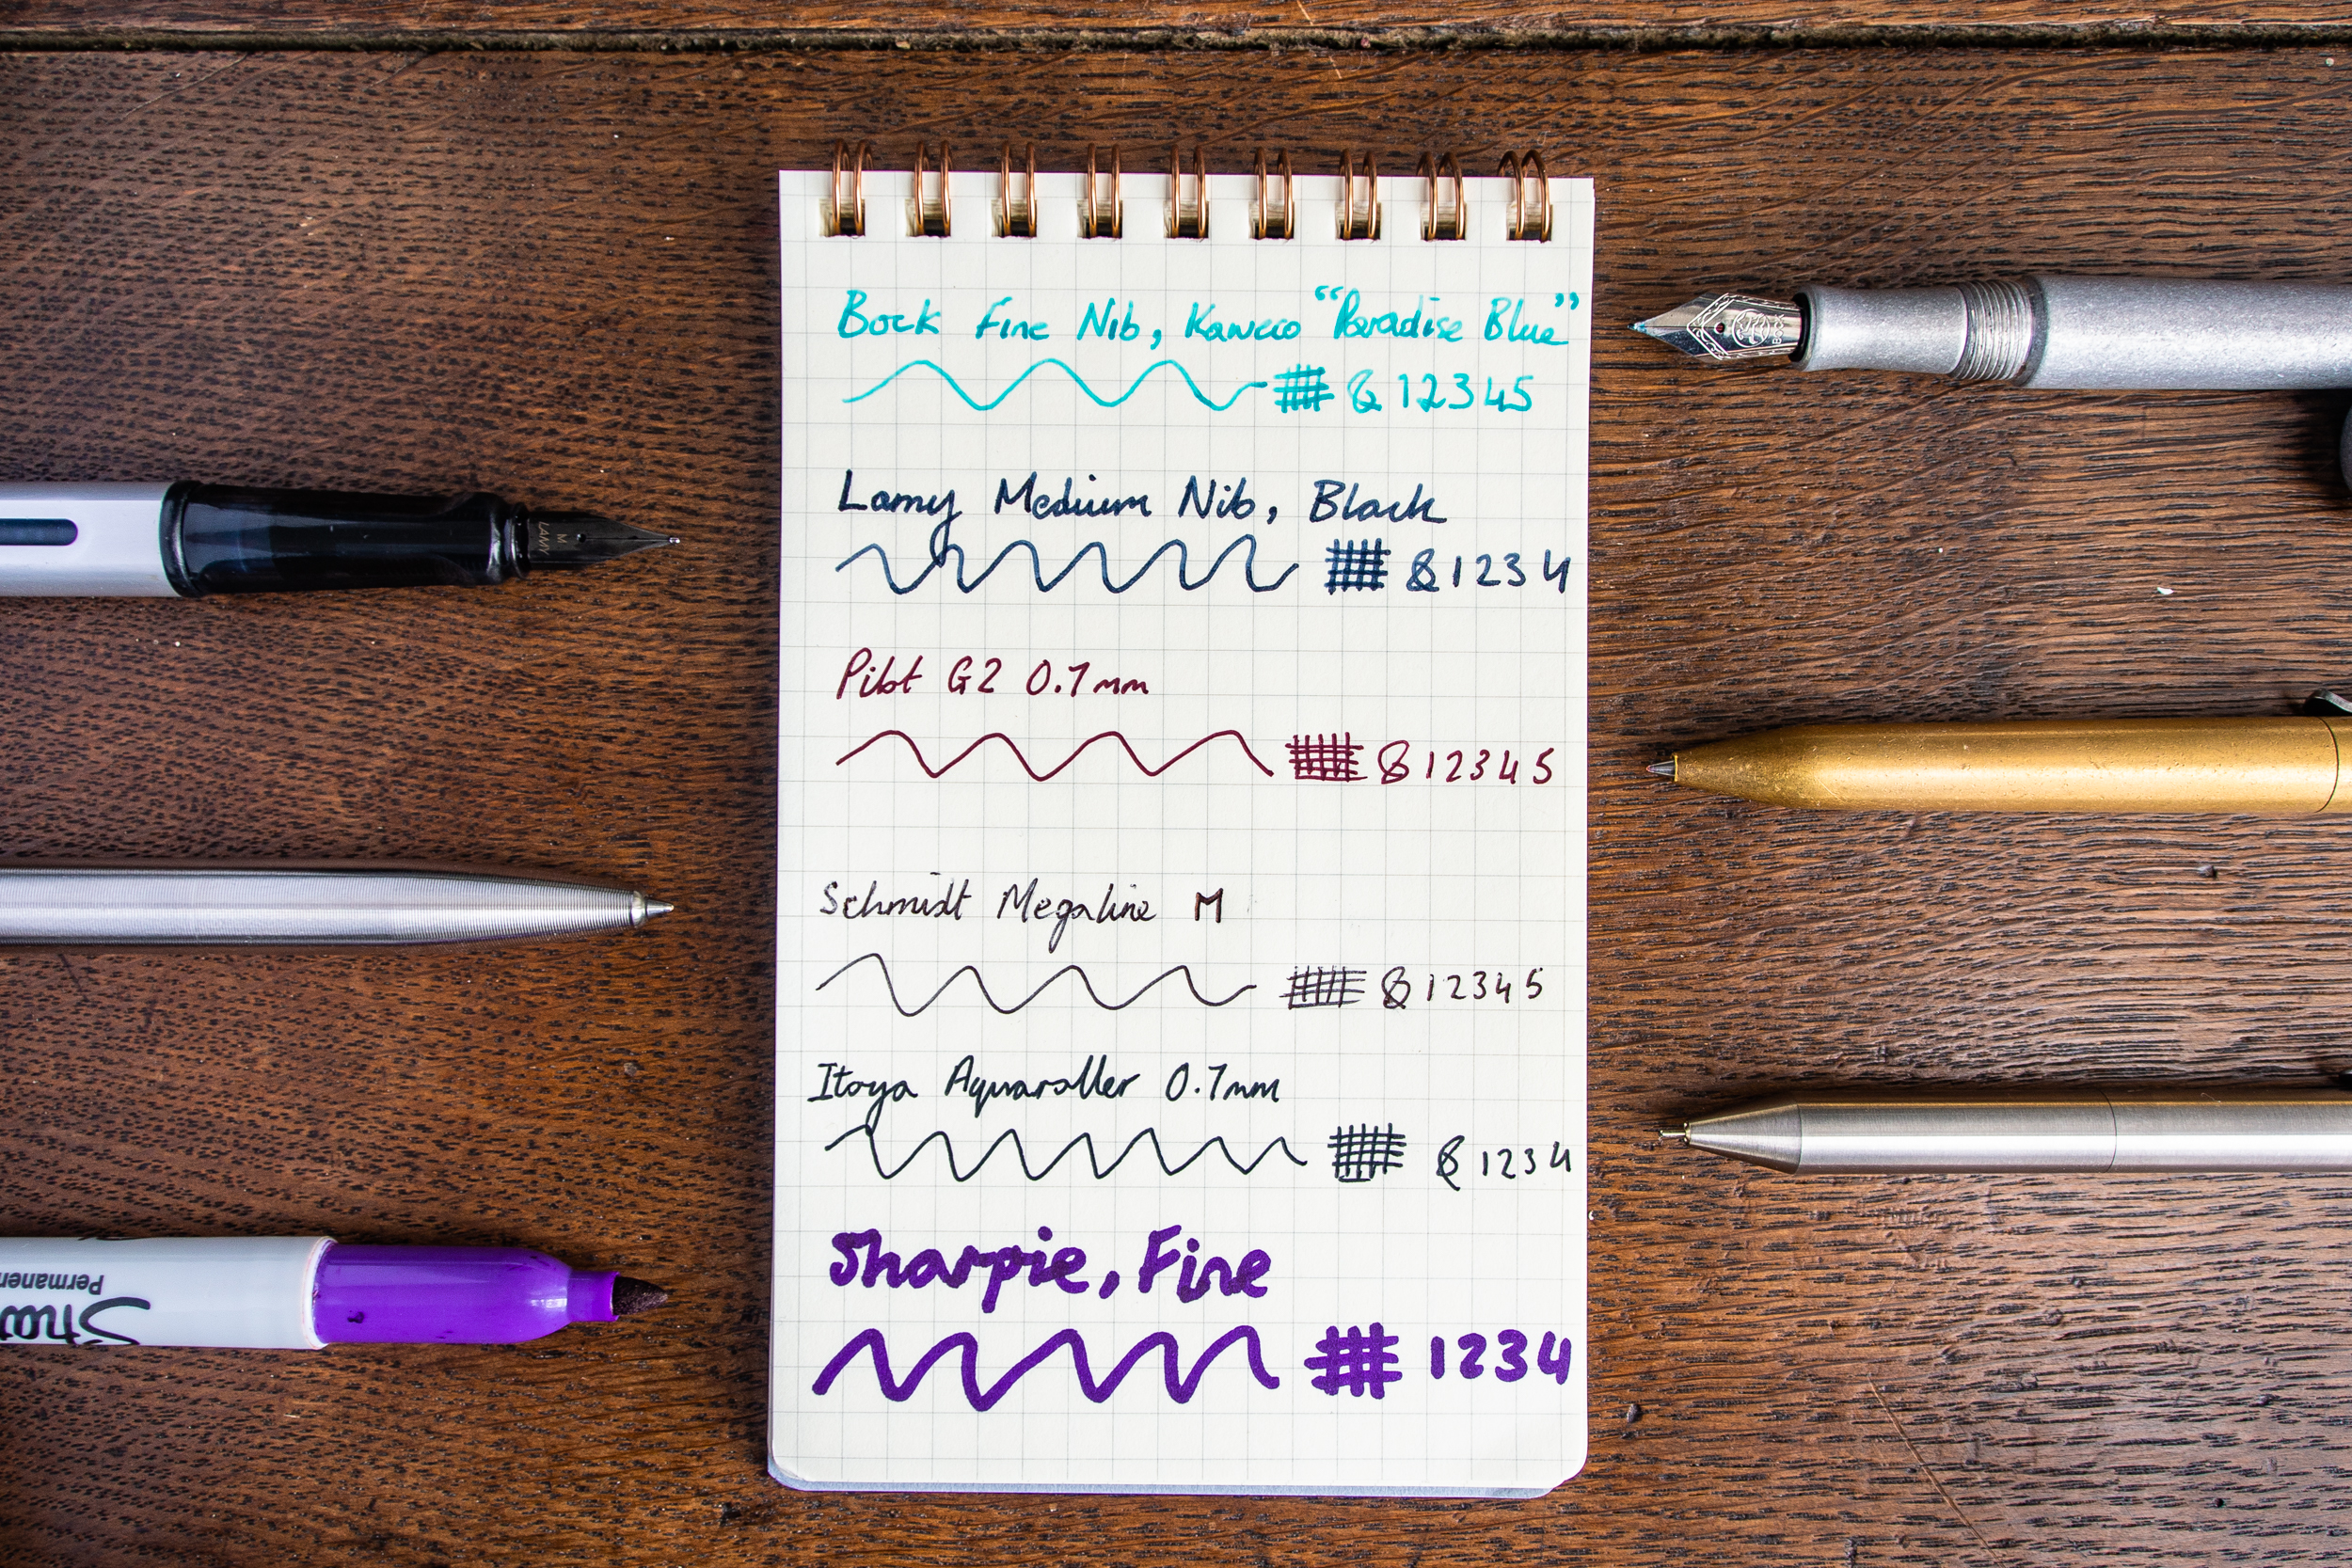 Bock Fine Nib, Kaweco "Paradise Blue"
# & 12345
Lamy Medium Nib, Black
# & 1234
Pilot G2 0.7mm
# & 12345
Schmidt Megaline M
# & 12345
Itoya Aquaroller 0.7mm
# & 1234
Sharpie, Fine
# 1234
LAMY
M
BOCK